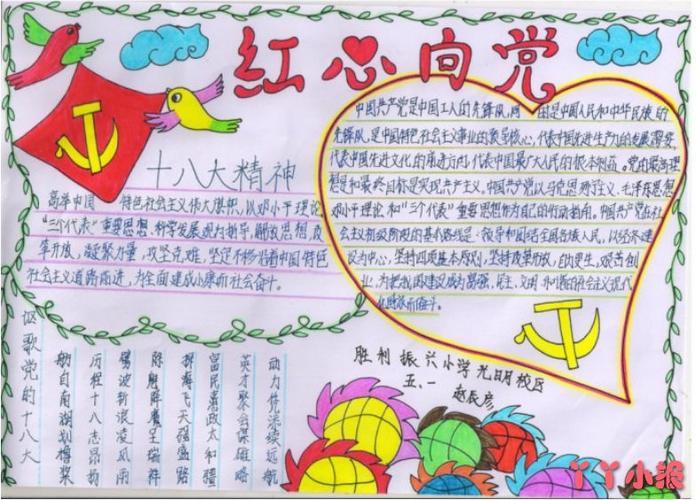 红心向党
十八大精神
高举中国 特色社会主义伟大旗帜，以邓小平理论、
“三个代表”重要思想，科学发展观为指导，解放思想，改
革开放，凝聚力量，攻坚克难，坚定不移沿着中国特色
社会主义道路前进，为全面建成小康而社会奋斗。
中国共产党是中国工人的先锋队，同 由是中国人民和中华民族的
先锋队，是中国特色社会主义事业的领导核心，代表中国先进生产力的发展需要
代表中国先进文化的前进方向，代表中国最广大人民的根本利益。党的最高理
想是和最终目标是实现共产主义，中国共产党以马克思列宁主义、毛泽东思想
邓小平理论和“三个代表”重要思想作为自己的行动指南。中国共产党在社
会主义初级阶段的基本路线是：领导和团结全国各族人民，以经济建
设为中心，坚持四项基本原则，坚持改革开放，自力更生，艰苦创
业，为把我国建设成为富强、民主、文明 和谐的社会主义现代
化国家而奋斗。
讴歌党的十八大
舫自南湖划橹桨
历程十八志昂扬
锡波斩浪凌风雨
除 降 呈瑞祥
探海飞天强盛路
富民惠政太和疆
英才聚会谋雄略
动力凭添续远航
胜利振兴小学光明校区
五.一 赵辰彦
丫丫小报